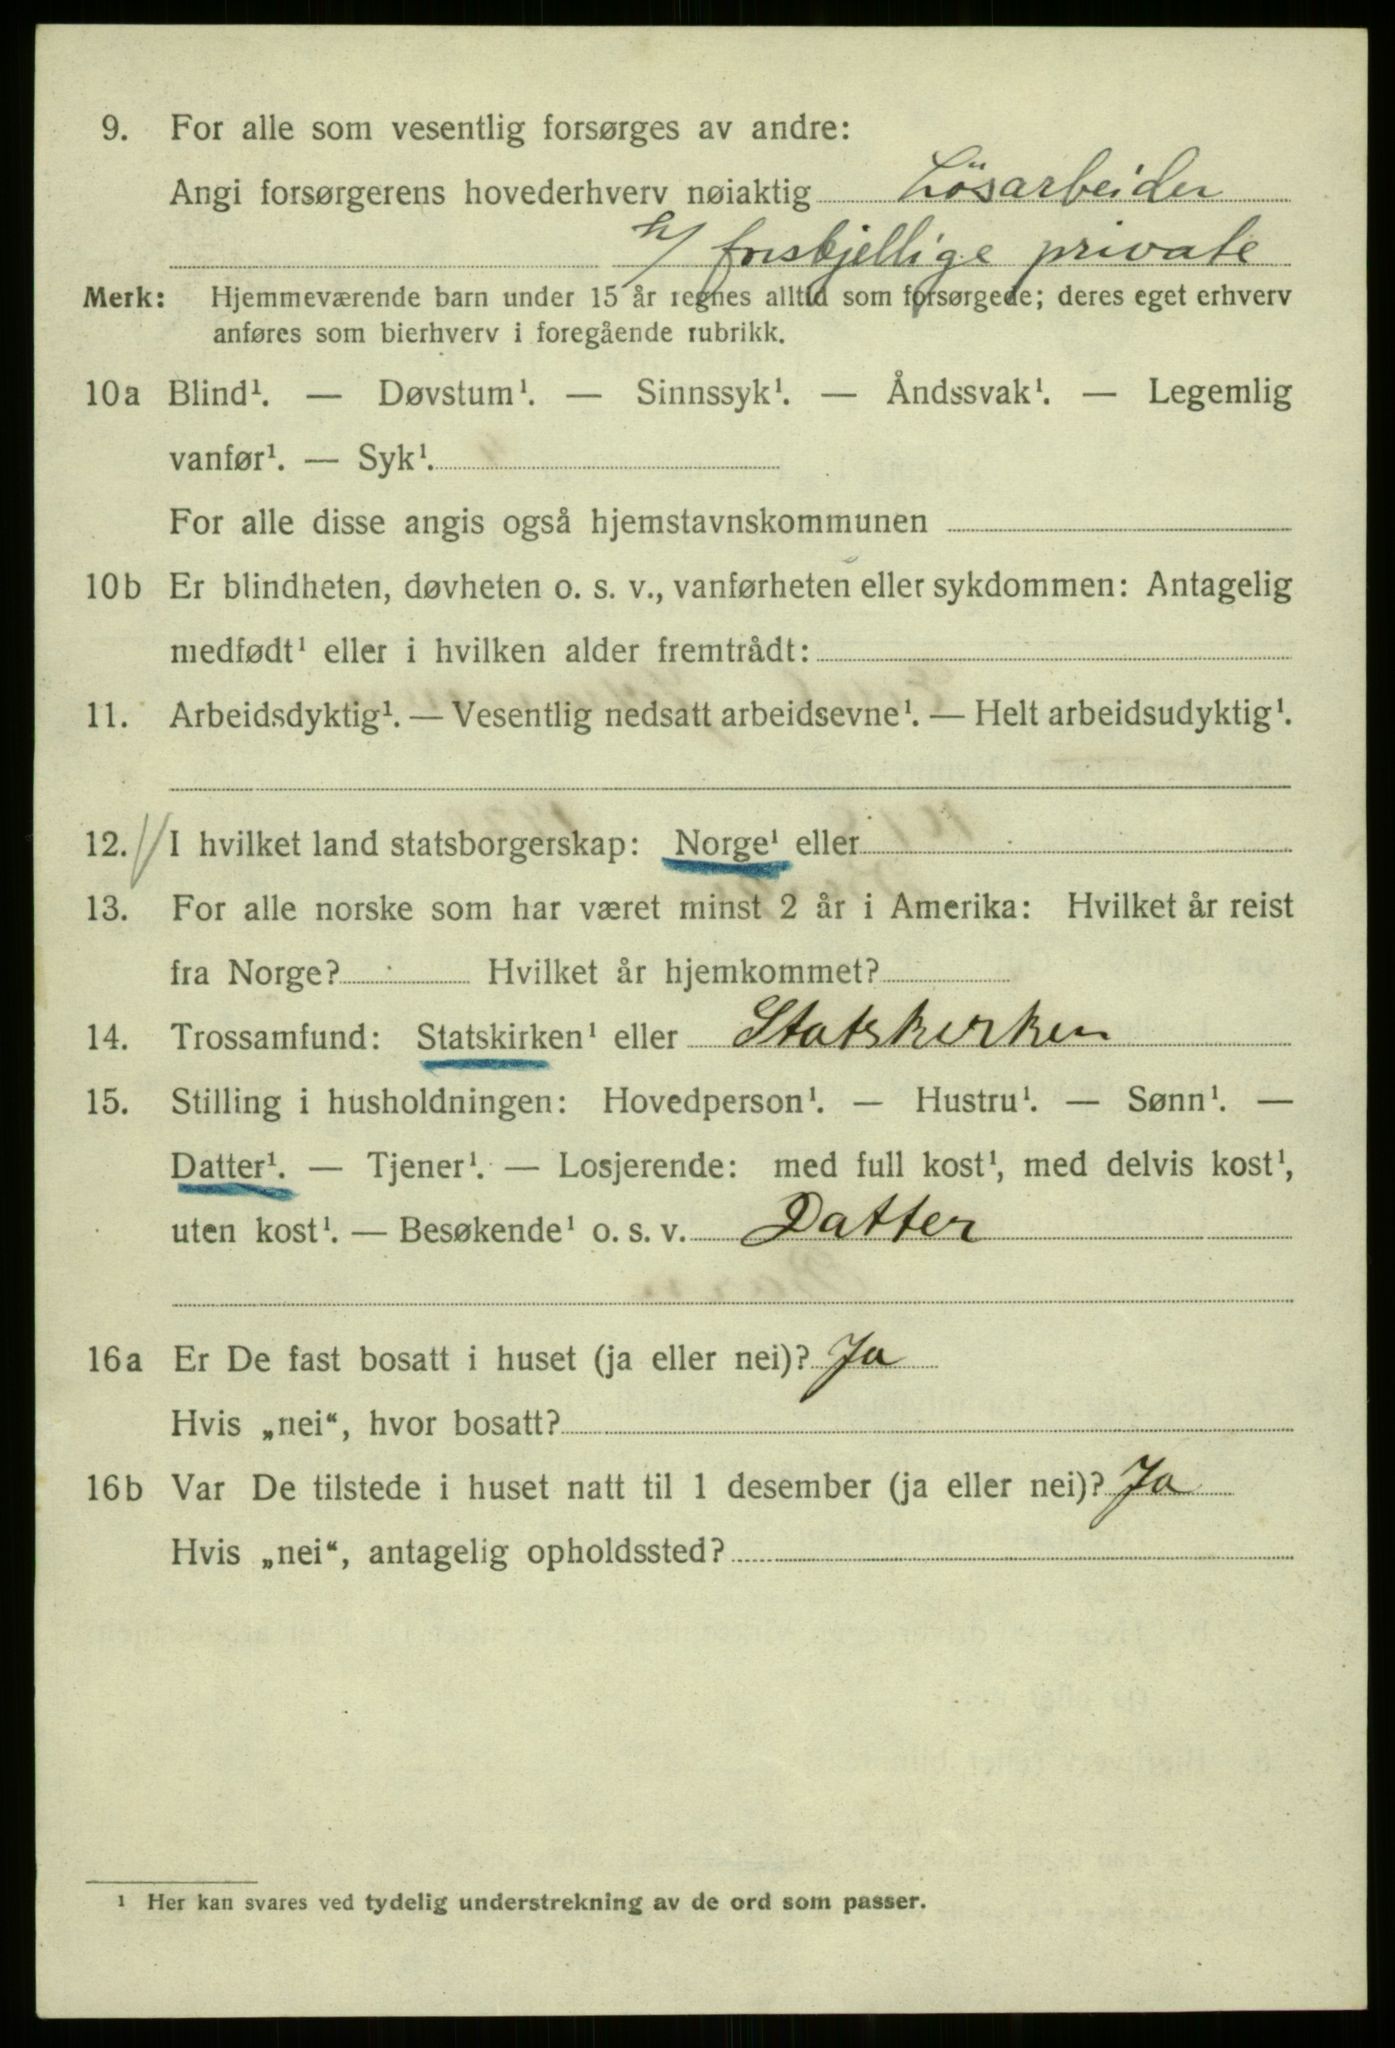 9. For alle som vesentlig forsørges av andre:
Angi forsørgerens hovederhverv nøiaktig Lösarbeider
h/ forskjellige private
Merk: Hjemmeværende barn under 15 år regnes alltid som forsørgede; deres eget erhverv
anføres som bierhverv i foregående rubrikk.
10a Blind¹. — Døvstum¹. — Sinnssyk¹. — Åndssvak¹. — Legemlig
vanfør¹. — Syk¹.
For alle disse angis også hjemstavnskommunen
10b Er blindheten, døvheten o. s. v., vanførheten eller sykdommen: Antagelig
medfødt¹ eller i hvilken alder fremtrådt:
11. Arbeidsdyktig¹. — Vesentlig nedsatt arbeidsevne¹. — Helt arbeidsudyktig¹.
12. // I hvilket land statsborgerskap: Norge¹ eller
13. For alle norske som har været minst 2 år i Amerika: Hvilket år reist
fra Norge? Hvilket år hjemkommet?
14. Trossamfund: Statskirken¹ eller Statskirken
15. Stilling i husholdningen: Hovedperson¹. — Hustru¹. — Sønn¹. —
Datter¹. — Tjener¹. — Losjerende: med full kost¹, med delvis kost¹,
uten kost¹. — Besøkende¹ o. s. v. Datter
16a Er De fast bosatt i huset (ja eller nei)? Ja
Hvis „nei“, hvor bosatt?
16b Var De tilstede i huset natt til 1 desember (ja eller nei)? Ja
Hvis „nei“, antagelig opholdssted?
¹ Her kan svares ved tydelig understrekning av de ord som passer.